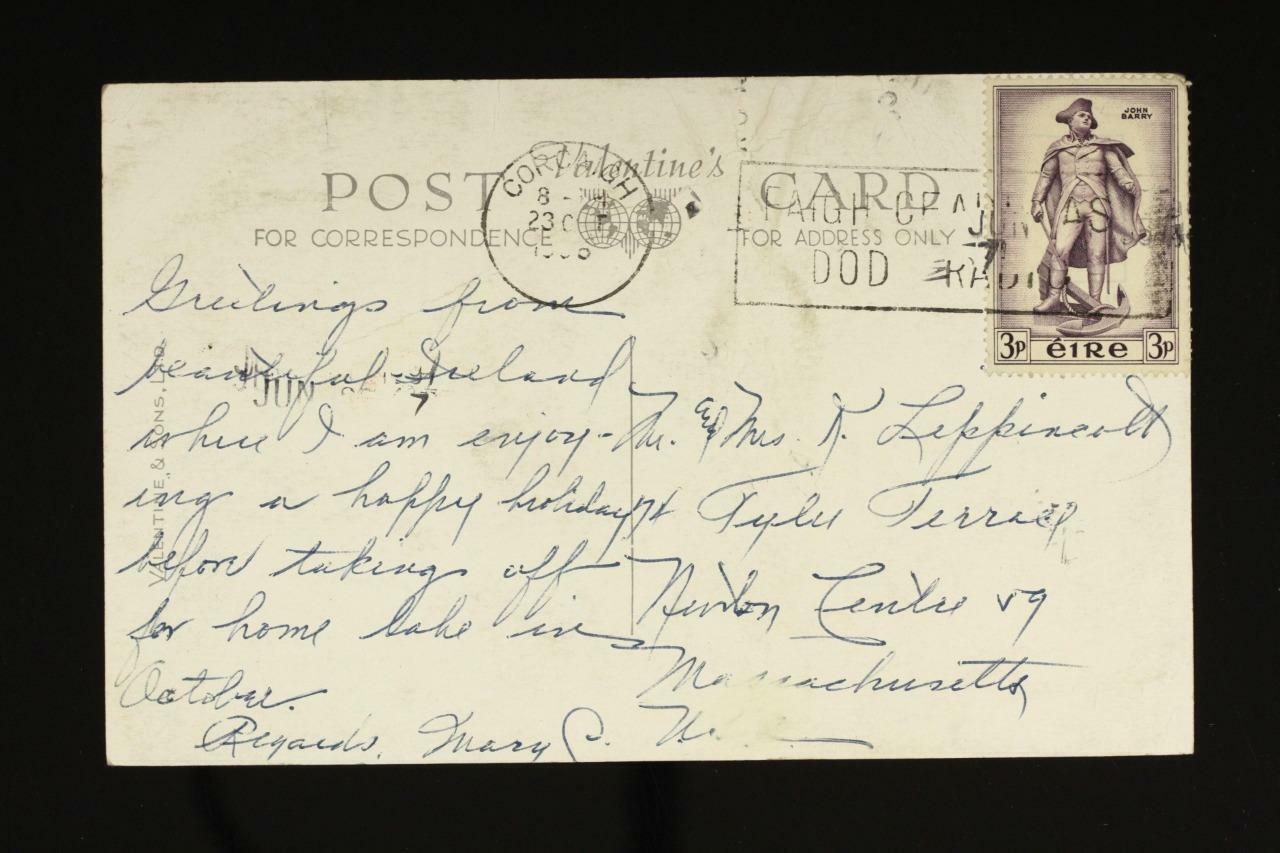 POST CARD
Valentine's
FOR CORRESPONDENCE
FOR ADDRESS ONLY
VALENTINE & SONS, LTD.
CORCAIGH
8 -
23 OCT
FAIGH CEAD
DOD RADIO
JOHN
BARRY
3p éIRe 3p
JUN
7
JUN
7
Greetings from
beautiful Ireland
where I am enjoy-
ing a happy holiday
before taking off
for home late in
October.
Regards, Mary C.
Mr. and Mrs. K. Lippincott
Tyler Terrace
Newton Centre 59
Massachusetts